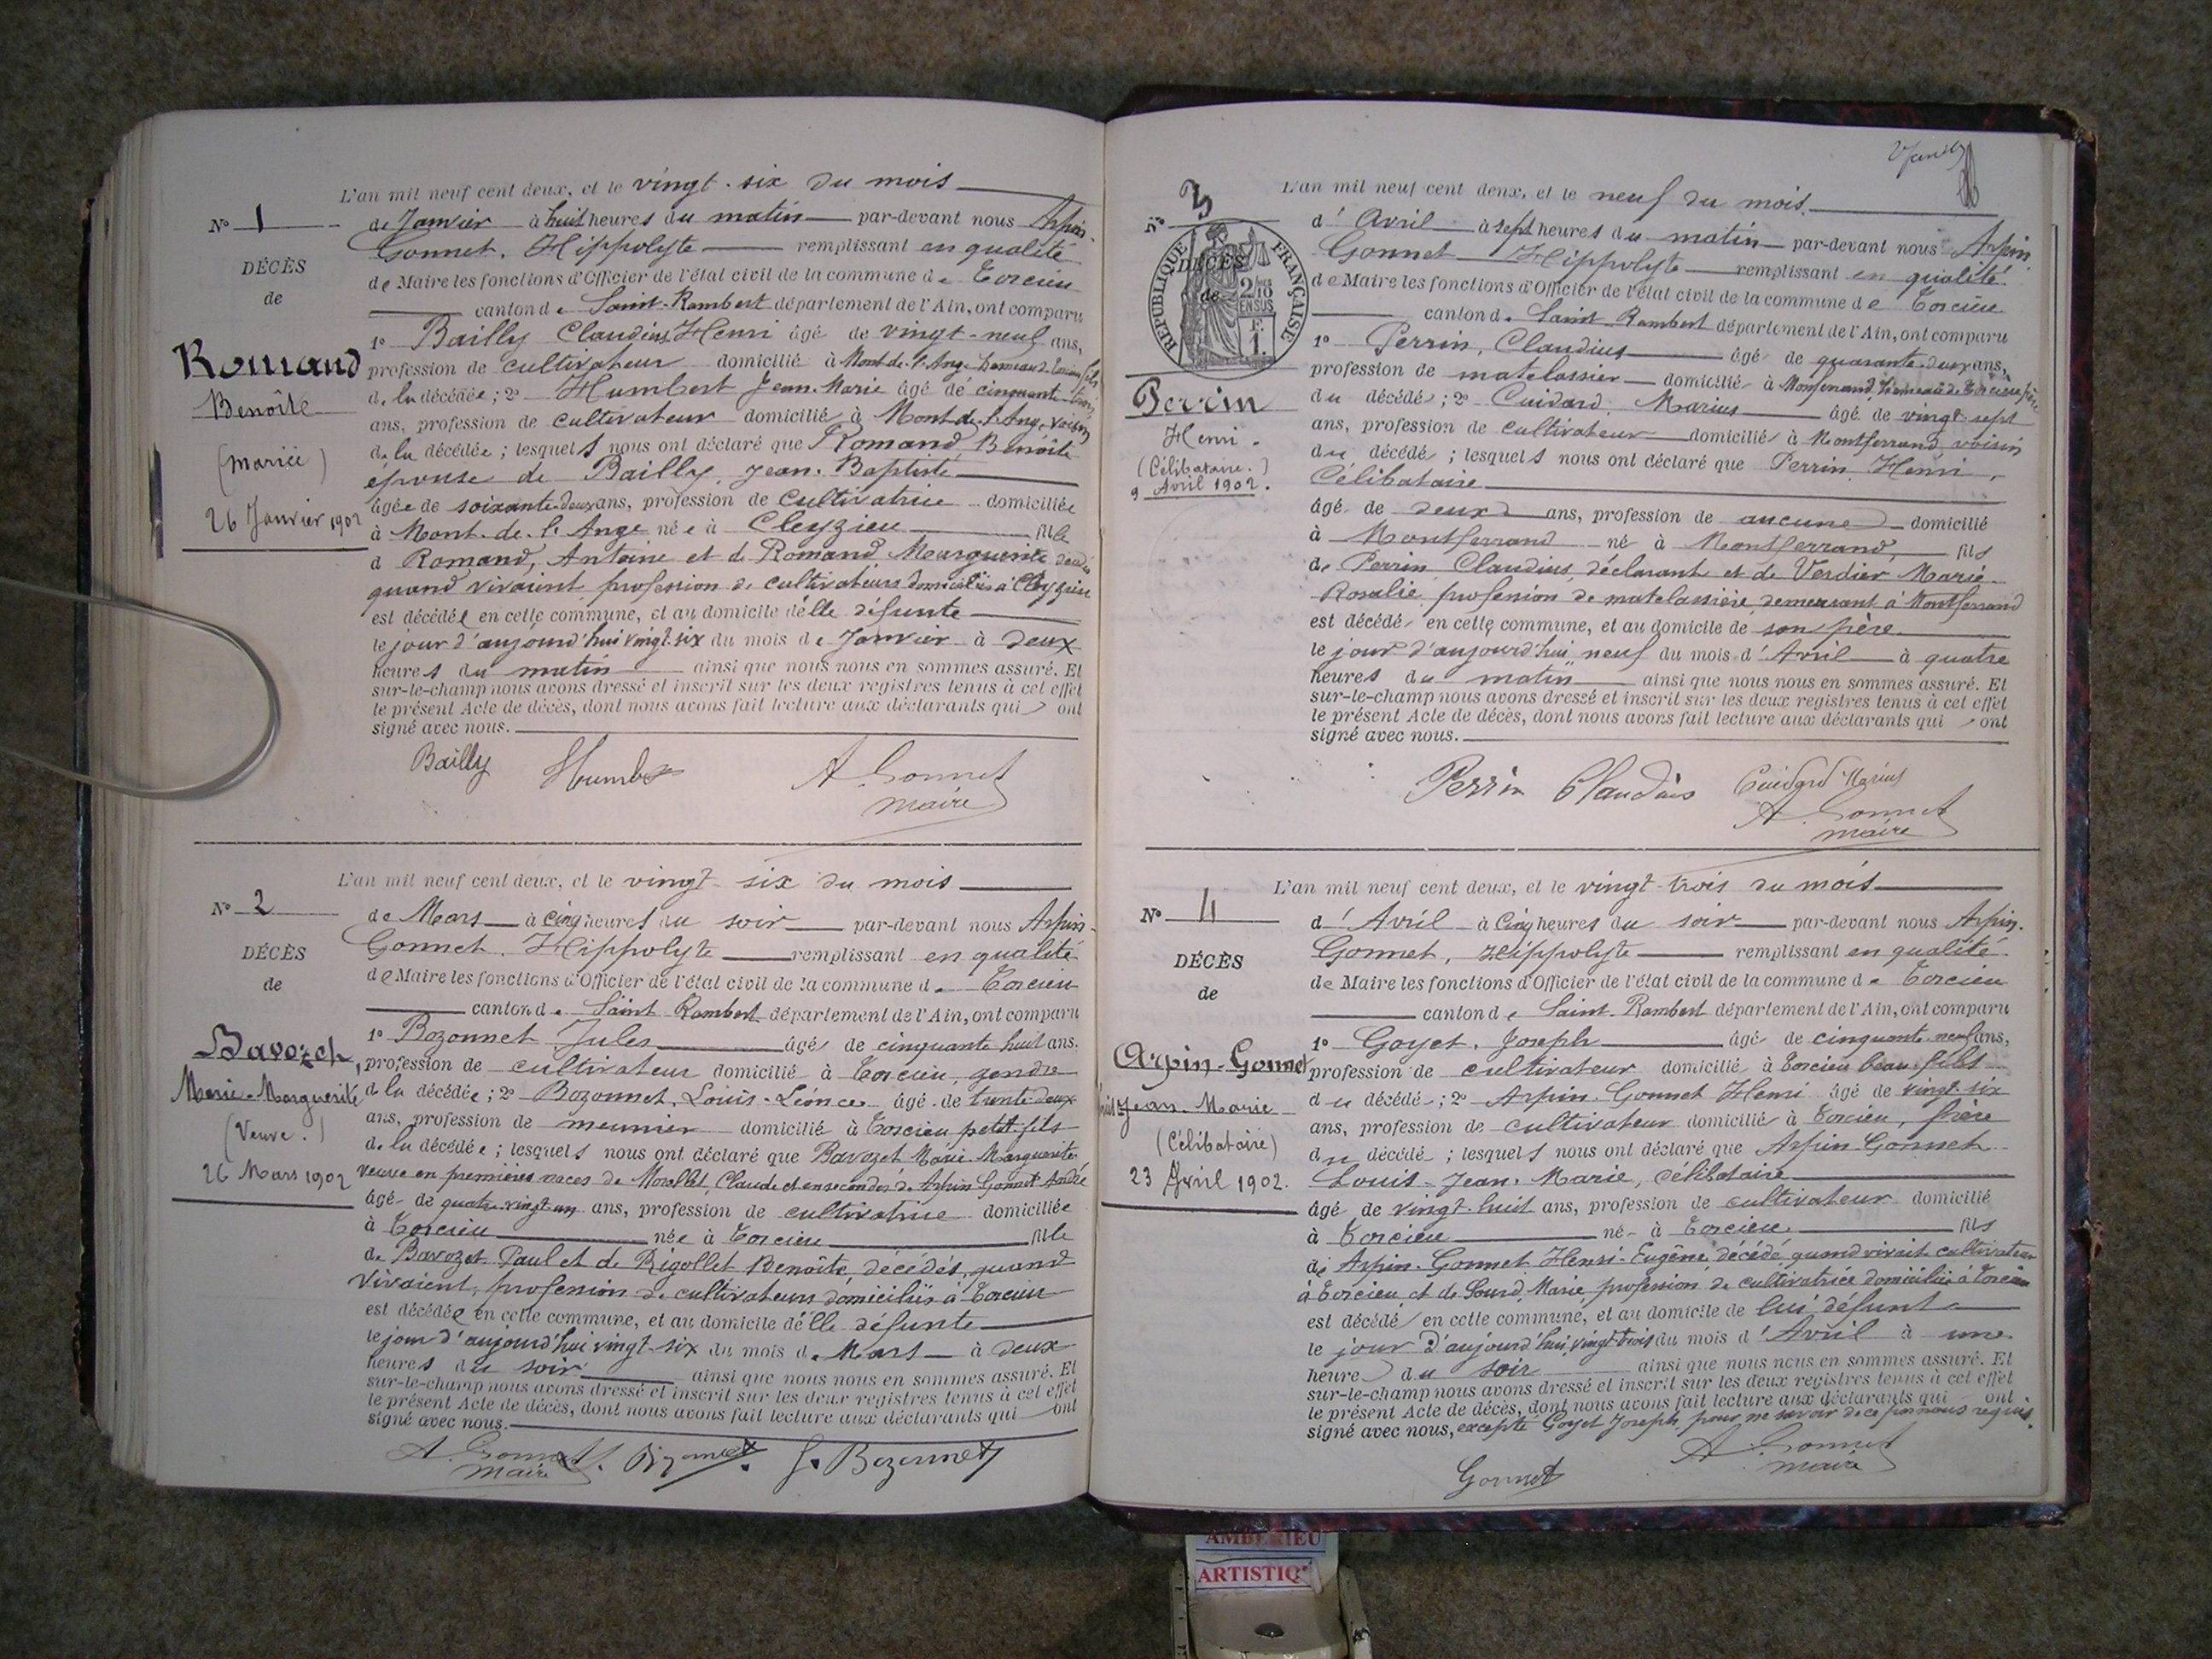 L'an mil neuf cent deux, et le vingt-six du mois
N° 1
de Janvier à huit heures du matin par-devant nous Arpin-
Gonnet, Hippolyte remplissant en qualité
DÉCÈS
de Maire les fonctions d'Officier de l'état civil de la commune de Torcieu
de
canton de Saint-Rambert département de l'Ain, ont comparu
1° Bailly Claudius Henri âgé de vingt-neuf ans,
Romand
profession de cultivateur domicilié à Mont-de-l'Ange hameau de Torcieu fils
Benoîte
de la décédée; 2° Humbert Jean-Marie âgé de cinquante-trois
ans, profession de cultivateur domicilié à Mont-de-l'Ange, voisin
(mariée)
de la décédée; lesquels nous ont déclaré que Romand, Benoîte
épouse de Bailly, Jean-Baptiste
26 Janvier 1902
âgée de soixante-deux ans, profession de cultivatrice domiciliée
à Mont-de-l'Ange née à Cleyzieu fille
d Romand, Antoine et de Romand Marguerite décédés
quand vivaient profession de cultivateurs domiciliés à Cleyzieu
est décédée en cette commune, et au domicile d'elle défunte
le jour d'aujourd'hui vingt-six du mois de Janvier à deux
heures du matin ainsi que nous nous en sommes assuré. Et
sur-le-champ nous avons dressé et inscrit sur les deux registres tenus à cet effet
le présent Acte de décès, dont nous avons fait lecture aux déclarants qui ont
signé avec nous.
Bailly Humbert A. Gonnet
maire
L'an mil neuf cent deux, et le vingt-six du mois
N° 2
de Mars à cinq heures du soir par-devant nous Arpin-
Gonnet, Hippolyte remplissant en qualité
DÉCÈS
de Maire les fonctions d'Officier de l'état civil de la commune de Torcieu
de
canton de Saint-Rambert département de l'Ain, ont comparu
1° Bozonnet Jules âgé de cinquante huit ans.
Bavozet,
profession de cultivateur domicilié à Torcieu, gendre
Marie-Marguerite
de la décédée; 2° Bozonnet, Louis-Léonce âgé de trente-deux
ans, profession de meunier domicilié à Torcieu petit-fils
(Veuve.)
de la décédée; lesquels nous ont déclaré que Bavozet Marie-Marguerite
26 Mars 1902
veuve en premières noces de Morallet, Claude et en secondes de Arpin-Gonnet André
âgé de quatre-vingt-un ans, profession de cultivatrice domiciliée
à Torcieu née à Torcieu fille
de Bavozet Paul et de Rigollet Benoîte, décédés, quand
vivaient, profession de cultivateurs domiciliés à Torcieu
est décédée en cette commune, et au domicile d'elle défunte
le jour d'aujourd'hui vingt-six du mois de Mars à deux
heures du soir ainsi que nous nous en sommes assuré. Et
sur-le-champ nous avons dressé et inscrit sur les deux registres tenus à cet effet
le présent Acte de décès, dont nous avons fait lecture aux déclarants qui ont
signé avec nous.
A. Gonnet J. Bozonnet
maire
L'an mil neuf cent deux, et le neuf du mois
N° 3
d'Avril à sept heures du matin par-devant nous Arpin
Gonnet Hippolyte remplissant en qualité
RÉPUBLIQUE FRANÇAISE
2/10 EN SUS
F. 1.
DÉCÈS
de
de Maire les fonctions d'Officier de l'état civil de la commune de Torcieu
canton de Saint-Rambert département de l'Ain, ont comparu
1° Perrin, Claudius âgé de quarante-deux ans,
profession de matelassier domicilié à Montferrand, hameau de Torcieu père
Perrin
du décédé; 2° Cuidard, Marius âgé de vingt-sept
Henri.
ans, profession de cultivateur domicilié à Montferrand voisin
(Célibataire.)
du décédé; lesquels nous ont déclaré que Perrin, Henri,
9 Avril 1902.
Célibataire
âgé de deux ans, profession de aucune domicilié
à Montferrand né à Montferrand, fils
de Perrin Claudius, déclarant et de Verdier Marie-
Rosalie, profession de matelassière demeurant à Montferrand
est décédé en cette commune, et au domicile de son père
le jour d'aujourd'hui neuf du mois d'Avril à quatre
heures du matin ainsi que nous nous en sommes assuré. Et
sur-le-champ nous avons dressé et inscrit sur les deux registres tenus à cet effet
le présent Acte de décès, dont nous avons fait lecture aux déclarants qui ont
signé avec nous.
Perrin Claudius Cuidard Marius
A. Gonnet
maire
L'an mil neuf cent deux, et le vingt-trois du mois
N° 4
d'Avril à cinq heures du soir par-devant nous Arpin-
Gonnet, Hippolyte remplissant en qualité
DÉCÈS
de Maire les fonctions d'Officier de l'état civil de la commune de Torcieu
de
canton de Saint-Rambert département de l'Ain, ont comparu
1° Goyet, Joseph âgé de cinquante-neuf ans,
Arpin-Gonnet
profession de cultivateur domicilié à Torcieu beau-fils
Jean-Marie
du décédé; 2° Arpin-Gonnet Henri âgé de vingt-six
ans, profession de cultivateur domicilié à Torcieu, frère
(Célibataire)
du décédé; lesquels nous ont déclaré que Arpin-Gonnet
23 Avril 1902.
Louis-Jean-Marie, célibataire
âgé de vingt-huit ans, profession de cultivateur domicilié
à Torcieu né à Torcieu fils
de Arpin-Gonnet Henri-Eugène, décédé, quand vivait cultivateur
à Torcieu et de Sourd Marie profession de cultivatrice domiciliée à Torcieu
est décédé en cette commune, et au domicile de lui défunt
le jour d'aujourd'hui, vingt-trois du mois d'Avril à une
heure du soir ainsi que nous nous en sommes assuré. Et
sur-le-champ nous avons dressé et inscrit sur les deux registres tenus à cet effet
le présent Acte de décès, dont nous avons fait lecture aux déclarants qui ont
signé avec nous, excepté Goyet Joseph pour ne savoir de ce par nous requis.
Gonnet A. Gonnet
maire
AMBERIEU
ARTISTIQ